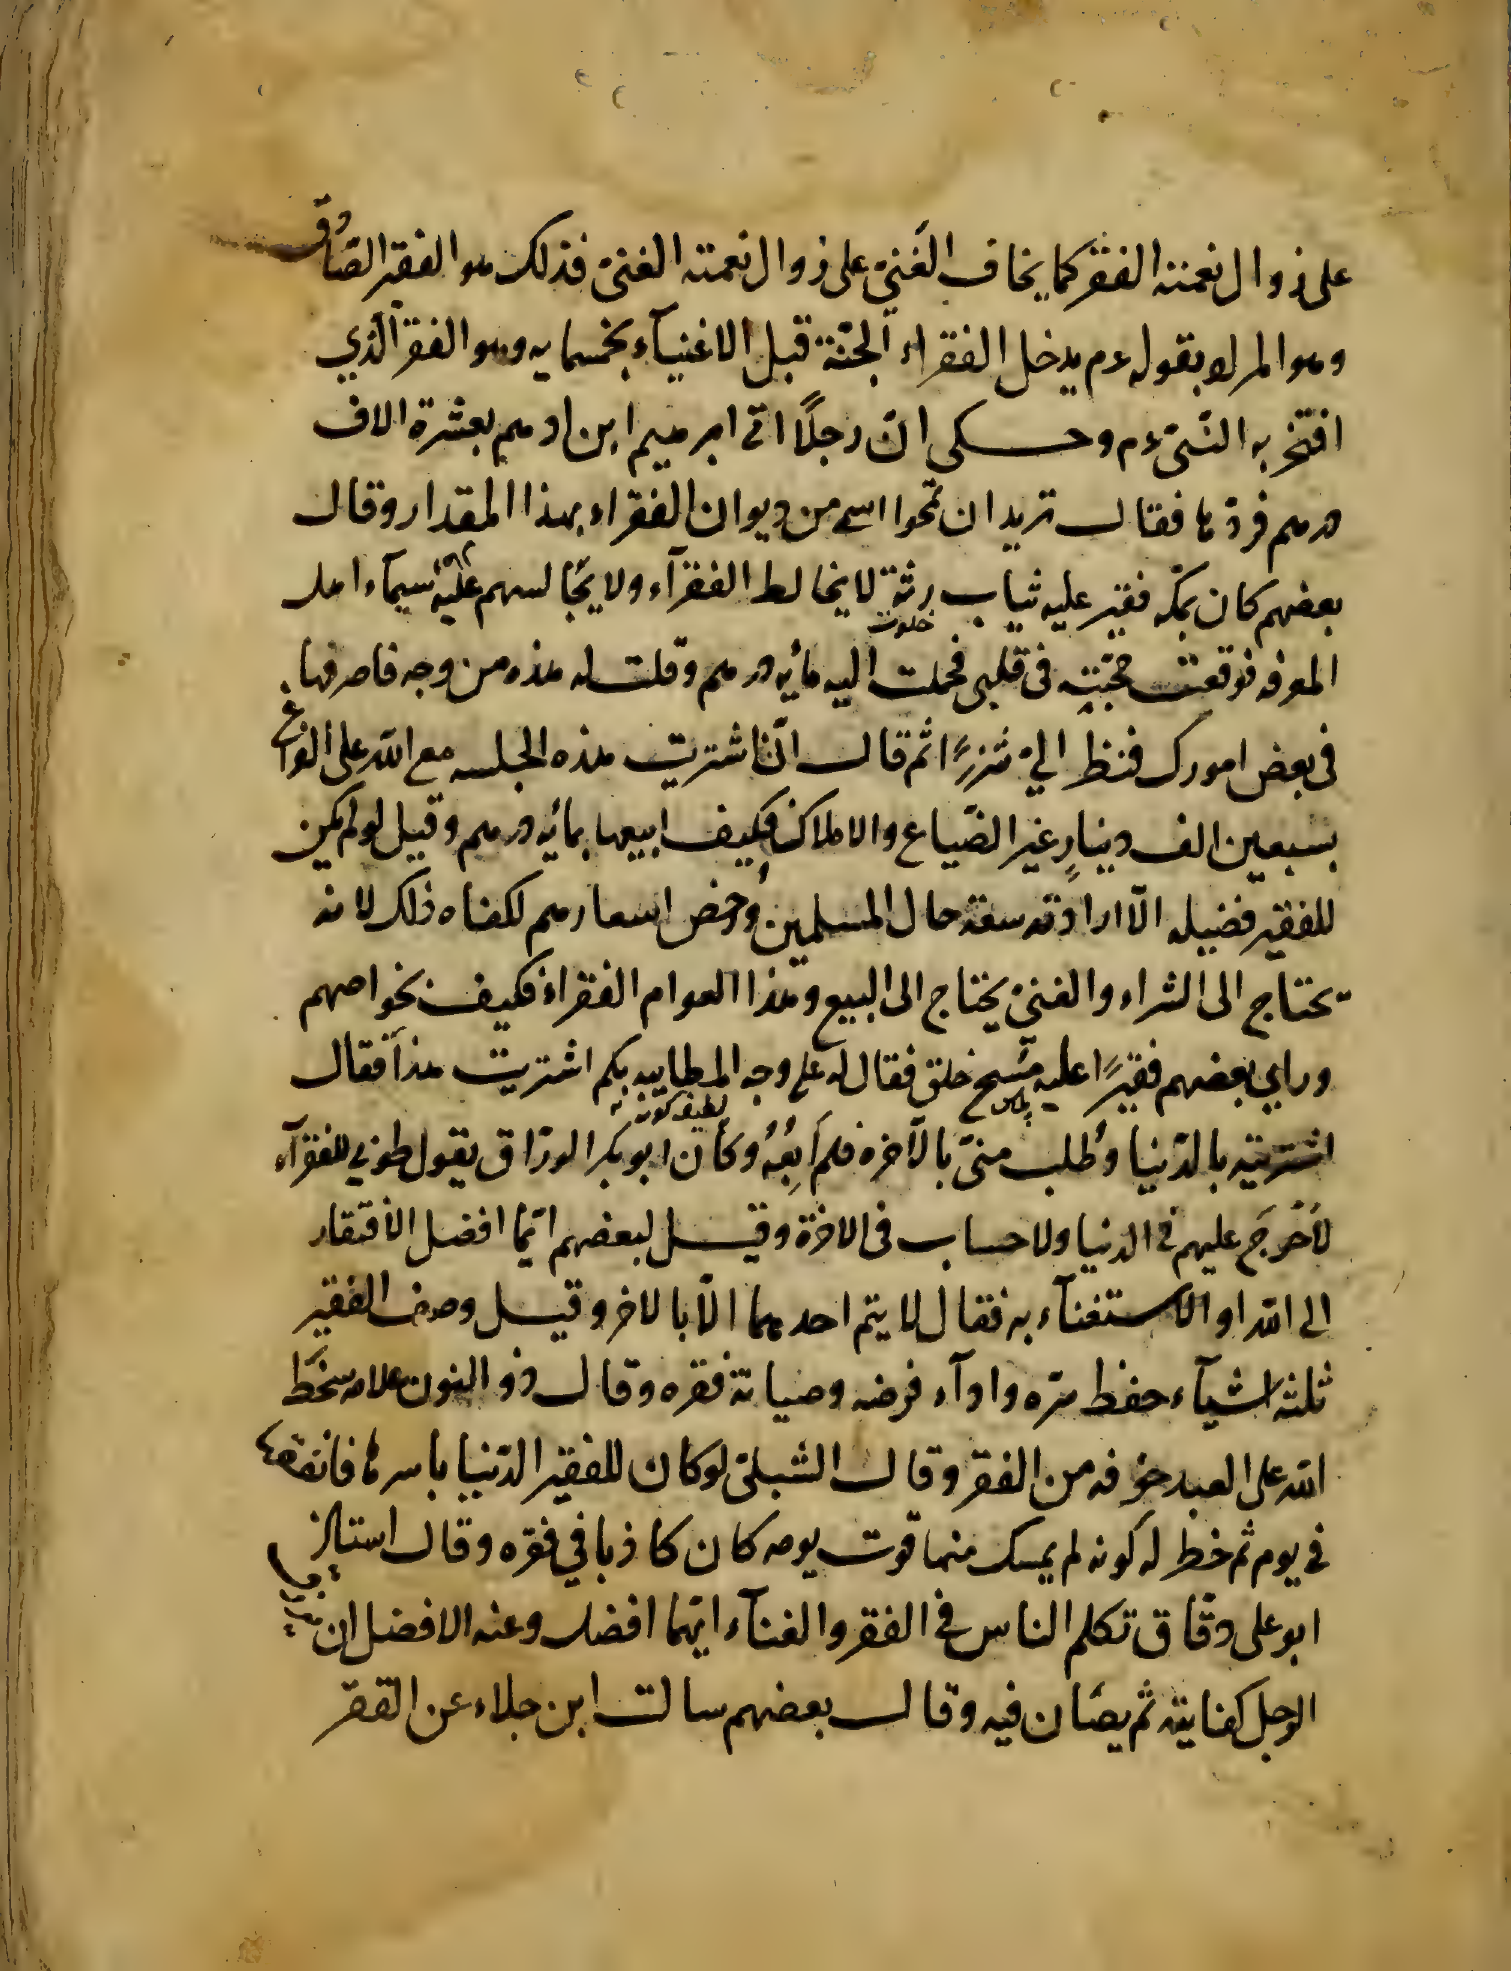 على زوال نعمته الفقر كما يخاف الغَنيّ على زوال نعمته الغنىّ فذلك هو الفقير الصّادق
وهو المراد بقوله عم يدخل الفقراء الجنّة قبل الاغنيآء بخمسمايه وهو الفقر الّذي
افتخر به النّبىّ عم وحكى انّ رجلًا اتى ابرهيم ابن ادهم بعشرة الاف
درهم فردّها فقال تريد ان تمحوا اسمى من ديوان الفقراء بهذا المقدار وقال
بعضهم كان بمكّه فقير عليه ثياب رثّة لا يخالط الفقرآء ولا يجَالسهم عليْه سيمآء اهل
خلوت
المعرفه فوقعت محبّته فى قلبى فحملت اليه مائه درهم وقلت له هذه من وجه فاصرفها
فى بعض امورك فنظر اليّ شزرًا ثم قال انّنا شتريت هذه الجلسه مع الله على الفراغ
بسبعين الف دينارٍ غير الضّياع والاملاك فكيف ابيعها بمائه درهم وقيل لو لم يكن
للفقير فضيله الّا ارادته سعة حال المسلمين ورخص اسعارهم لكفاه ذلك لانه
يحتاج الى الشراء والغنىّ يحتاج الى البيع وهذا العوام الفقراء فكيف بخواصهم
وراي بعضهم فقيرًا عليه مسْح خلق فقال له على وجه المطايبه بكم اشتريت هذا فقال
پلاس لطيفه كونه
اشتريته بالدّنيا وطُلب منىّ بالآخره فلم اَبِعْهُ وكان ابو بكر الورّاق يقول طوبي للفقرآء
لا خَرجَ عليهم فى الدنيا ولا حساب فى الاخرة وقيل لبعضهم ايّما افضل الأفتقار
الى الله او الاستغنآء به فقال لا يتم احدهما الّا بالاخر وقيل وصف الفقير
ثلثه اشيآء حفظ سّره وادآء فرضه وصيانة فقره وقال ذو النون علامه سخَط
الله على العبد خوفه من الفقر وقال الشبلىّ لو كان للفقير الدّنيا باسرها فانفقها
فى يوم ثم خطر له كونه لم يمسك منها قوت يومه كان كاذبا في فقره وقال استاذ
ابو على دقّاق تكلم الناس فى الفقر والغنآء ايّهما افضل وعنه الافضل ان يعطى
الرجل كفايته ثم يصَان فيه وقال بعضهم سالت ابن جلاء عن الفقر